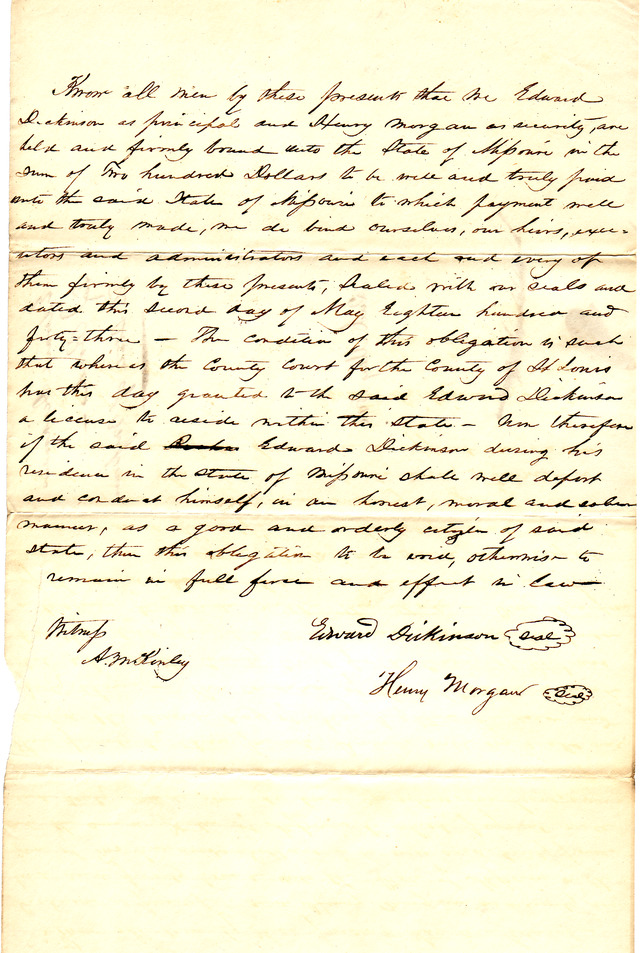 Know all men by these presents that we Edward
Dickinson as principal and Henry Morgan as security, are
held and firmly bound unto the State of Missouri in the
sum of Two hundred Dollars to be well and truly paid
unto the said State of Missouri to which payment well
and truly made, we do bind ourselves, our heirs, exec-
utors and administrators and each and every of
them firmly by these presents, sealed with our seals and
dated this second day of May Eighteen hundred and
forty=three — The condition of this obligation is such
that whereas the County Court for the County of St Louis
has this day granted to the said Edward Dickinson
a license to reside within this state — Now therefore
if the said Edward Dickinson during his
residence in the state of Missouri shall well deport
and conduct himself, in an honest, moral and sober
manner, as a good and orderly citizen of said
state, then this obligation to be void, otherwise to
remain in full force and effect in law
Witness
A McKinley
Edward Dickinson seal
Henry Morgan seal